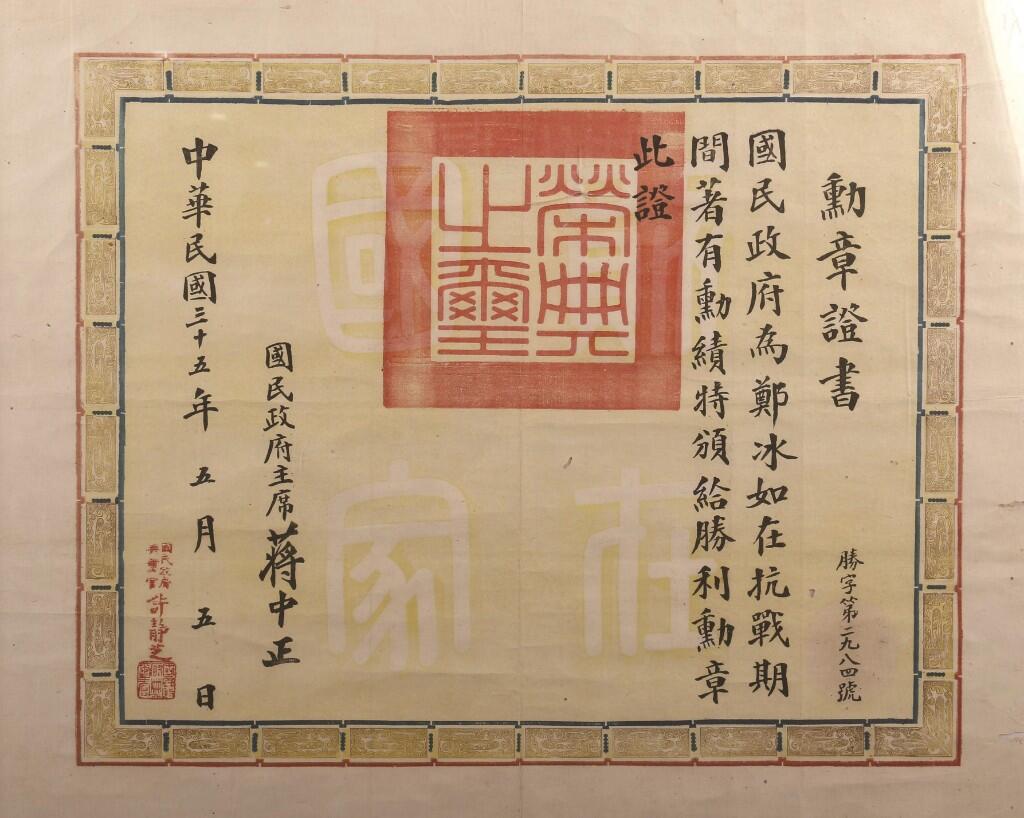 勳章證書
勝字第二九八四號
國民政府為鄭冰如在抗戰期
間著有勳績特頒給勝利勳章
此證
榮典
之璽
國民政府主席蔣中正
中華民國三十五年五月五日
國民政府
典璽官許靜芝